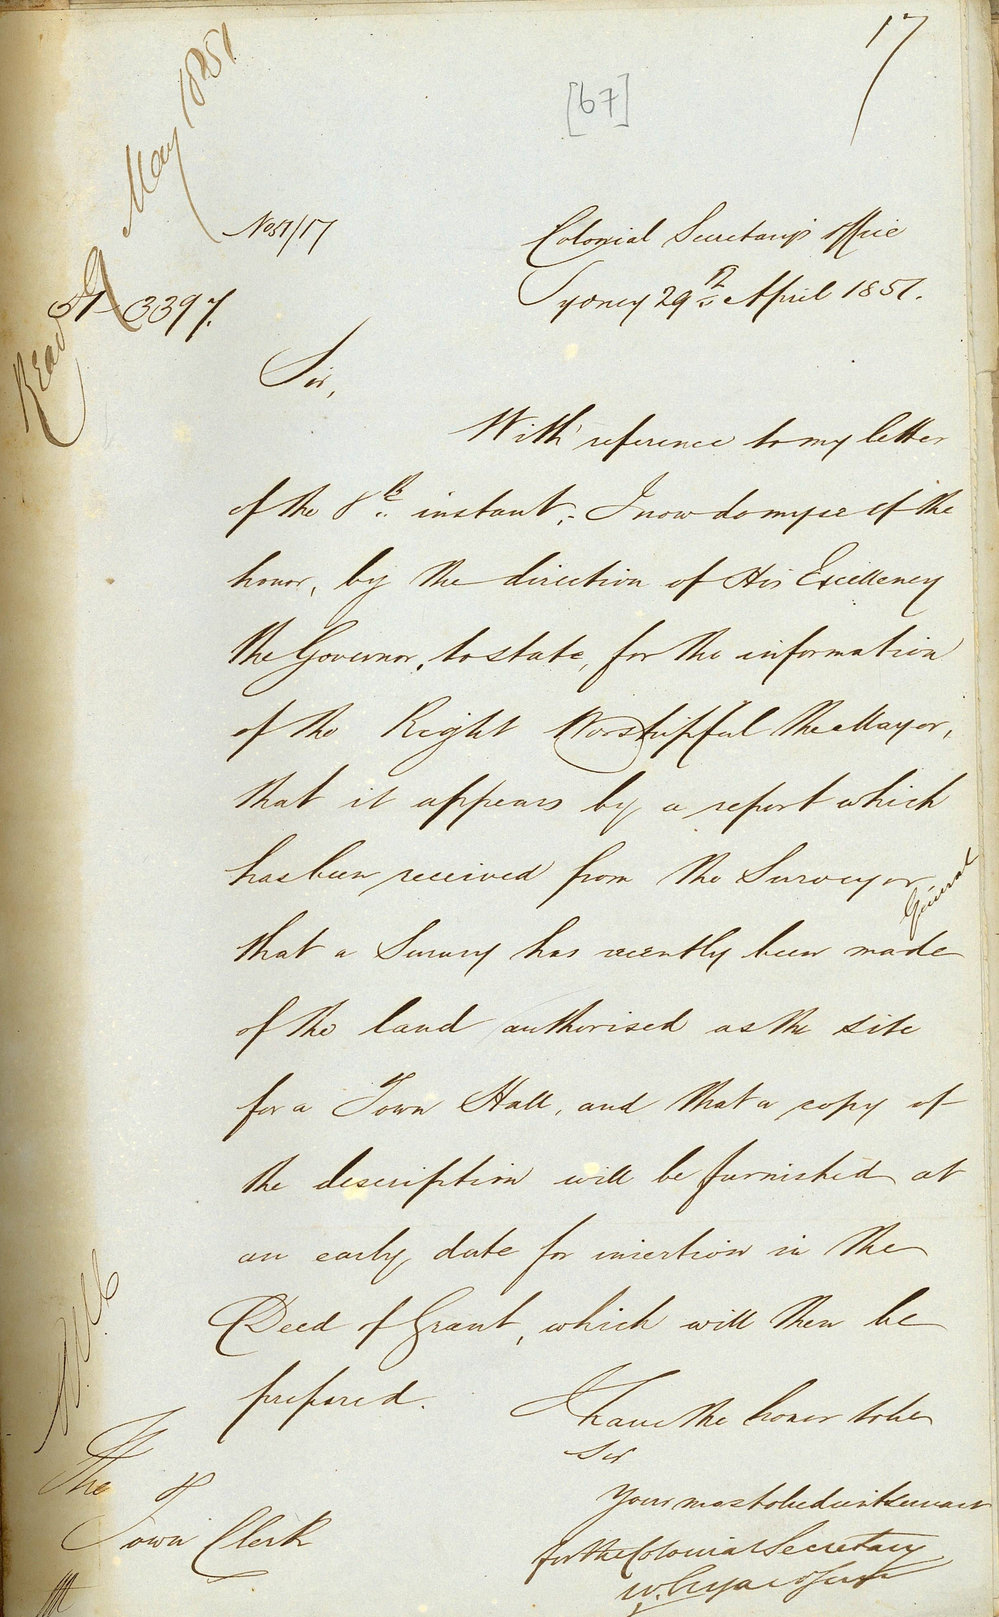 17
[67]
Read 9 May 1851
No 51/17
Colonial Secretary's Office
Sydney 29th April 1851.
51-3397.
Sir,
With reference to my letter
of the 8th instant, I now do myse of the
honor, by the direction of His Excellency
the Governor, to state, for the information
of the Right Worshipful the Mayor,
that it appears by a report which
has been received from the Surveyor General
that a Survey has recently been made
of the land authorised as the site
for a Town Hall, and that a copy of
the description will be furnished at
an early date for insertion in the
Deed of Grant, which will then be
prepared.
I have the honor to be
Sir
Your most obedient Servant
for the Colonial Secretary
The
Town Clerk